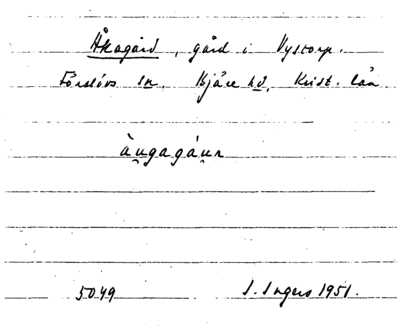 Åkagård, gård i Vystorp.
Förslövs sn. Bjäre hd, Krist. län
àu̯gagáu̯r
5049 I. Ingers 1951.